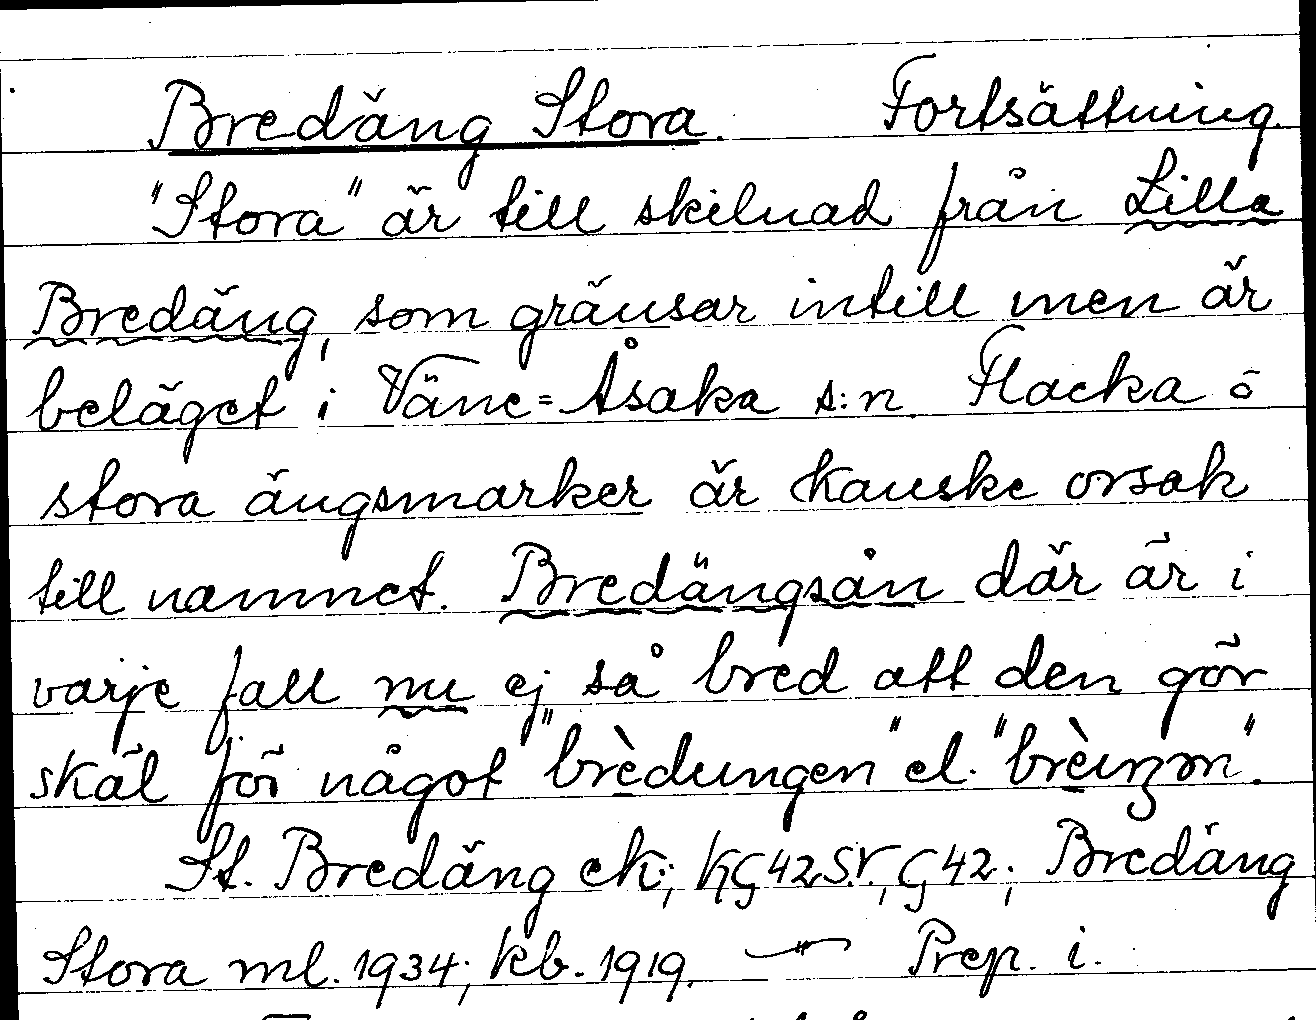 Bredäng Stora. Fortsättning.
"Stora" är till skilnad från Lilla
Bredäng, som gränsar intill men är
beläget i Väne=Åsaka s:n. Flacka o
stora ängsmarker är kanske orsak
till namnet. Bredängsån där är i
varje fall nu ej så bred att den gör
skäl för något "brèdungen" el. "brèiŋən".
St. Bredäng ek.; KG42S.V., G42; Bredäng
Stora ml. 1934; kb. 1919. —"— Prep. i.